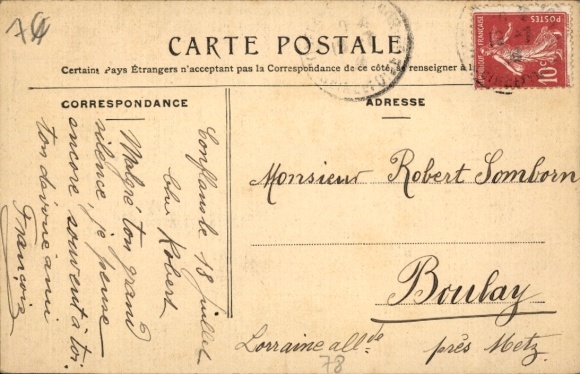 74
CARTE POSTALE
Certains Pays Étrangers n'acceptant pas la Correspondance de ce côté, se renseigner à la
CORRESPONDANCE
Conflans le 18 juillet
Cher Robert
Malgré ton grand
silence, je pense
encore souvent à toi.
ton dévoué ami
François
ADRESSE
Monsieur Robert Somborn
Boulay
Lorraine allde
près Metz
78
POSTES
10c